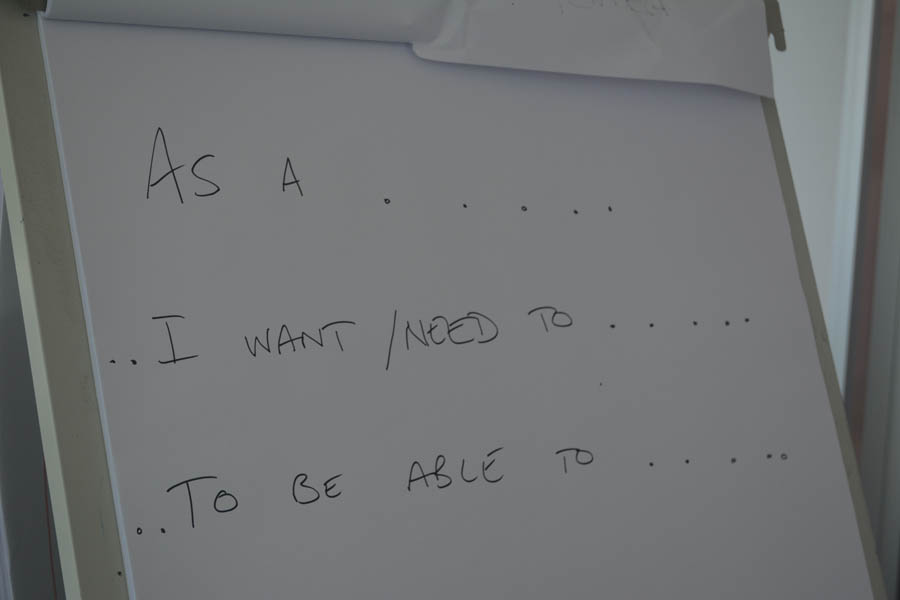 As A . . . . .
..I WANT /NEED TO . . . . .
..To BE ABLE TO . . . . .